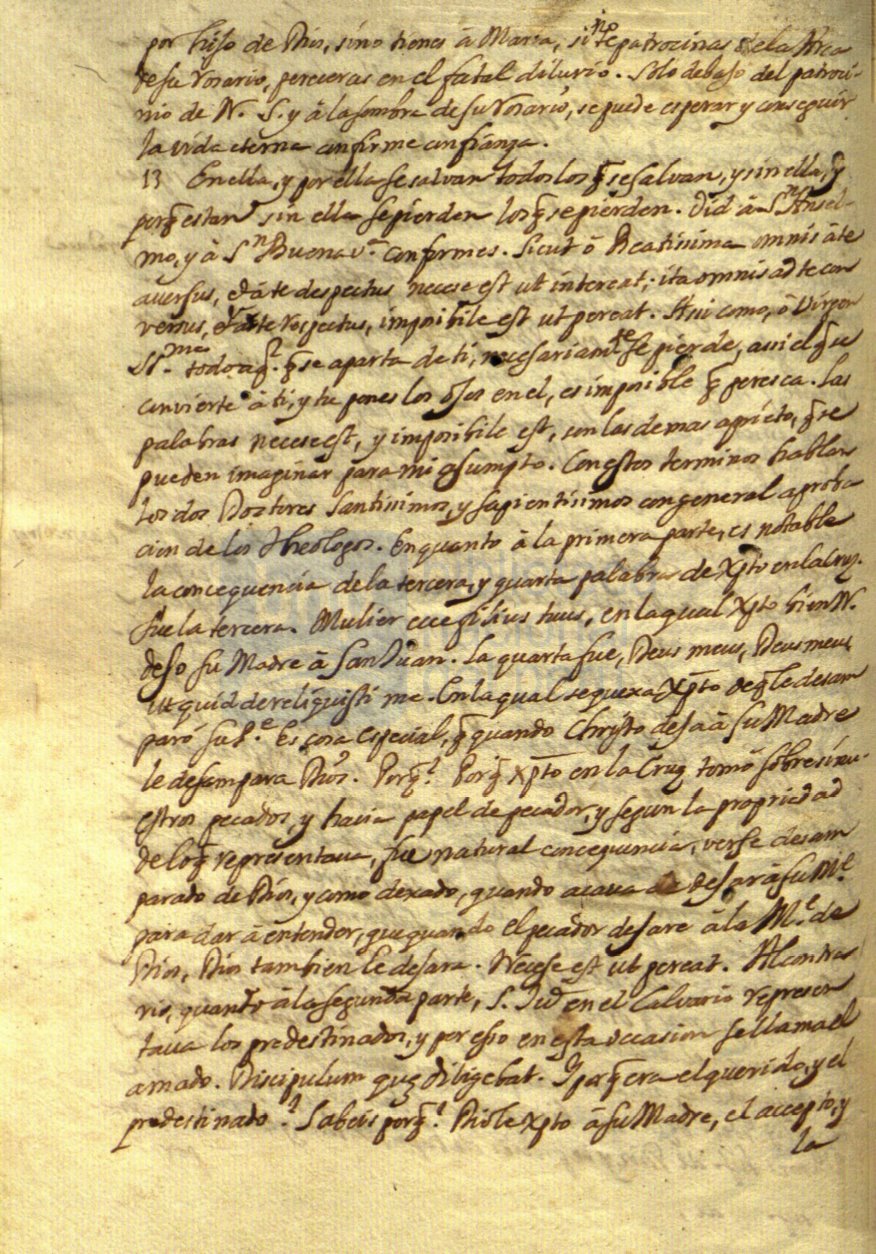 por hijo de Dios, sino tienes â Maria, si no te patrocinas de la Arca
de su Rosario, pereceras en el fatal diluvio. Solo debajo del patroci-
nio de N. S. y â la sombra de su Rosario, se puede esperar y conseguir
la vida eterna con firme confianza.
13 En ella, y por ella se salvan todos los q̃ se salvan, y sin ella, y
porq̃ estan sin ella se pierden los q̃ se pierden. Oid â Sn Ansel-
mo, y â Sn Buenava. conformes. Sicut ô Beatissima omnis â te
aversus, et â te despectus necese est ut intereat, ita omnis ad te con
versus, et â te respectus, imposibile est ut pereat. Asi como, ô Virgen
SSma. todo aql. q̃ se aparta de ti, necesariamte se pierde, assi el que
convierte â ti, y tu pones los ojos en el, es imposible q̃ peresca. Las
palabras necese est, y imposibile est, son las de mas aprieto, q̃ se
pueden imaginar para mi asumpto. Con estos terminos hablan
los dos Doctores Santisimos, y sapientisimos con general aproba
cion de los Theologos. En quanto â la primera parte, es notable
la consequencia de la tercera, y quarta palabra de Xp̃to en la Cruz.
fue la tercera. Mulier ecce filius tuus, en la qual Xp̃to bien N.
dejo su Madre â San Juan. La quarta fue, Deus meus, Deus meus
ut quid dereliquisti me. En la qual se quexa Xp̃to de q̃ le desam
paró su Pe. Es cosa especial, q̃ quando Christo deja â su Madre
le desampara Dios. Porq̃? Porq̃ Xp̃to en la Cruz tomó sobre si nu-
estros pecados, y hacia papel de pecador, y segun la propriedad
de lo q̃ representava, fue natural consequencia, verse desam
parado de Dios, y como dexado, quando acava de dejar â su Me.
para dar â entender, que quando el pecador dejare â la Me. de
Dios, Dios tambien le dejara. Necese est ut pereat. Al contra
rio, quanto â la segunda parte, S. Jun en el Calvario represen
tava los predestinados, y por esso en esta occasion se llama el
amado. Discipulum quẽ diligebat. Y porq̃ era el querido, y el
predestinado? Sabeis porq̃? Diole Xp̃to â su Madre, el accepto, y
la